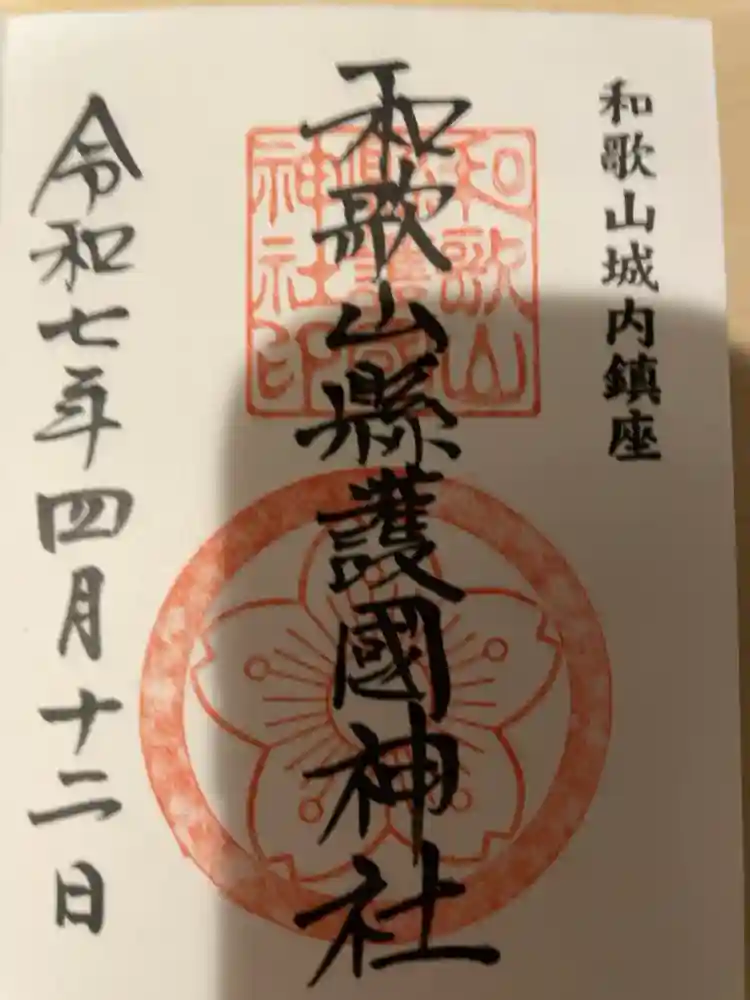 和歌山城内鎮座
和歌山縣護國神社
和歌山
縣護國
神社印
令和七年四月十二日